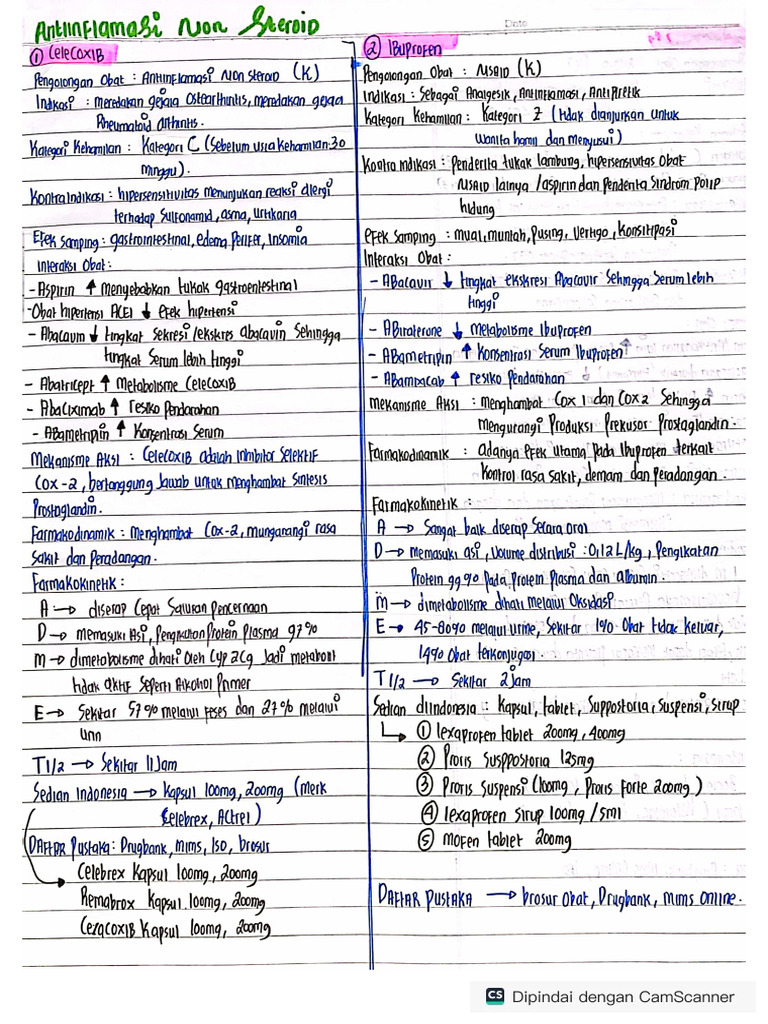 Antiinflamasi Non Steroid
Dato
① CeleCoxIB
Pengolongan Obat : Antiinflamasi Non steroid (K)
Indikasi : meredakan gejala Ostearthritis, meredakan gejala
Rheumatoid arthritis.
Kategori Kehamilan : Kategori C (Sebelum usia Kehamilan 30
minggu).
Kontraindikasi : hipersensitivitas menunjukan reaksi alergi
terhadap Sulfonamid, asma, Urtikaria
Efek samping : gastrointestinal, edema perifer, Insomia
Interaksi Obat :
- Aspirin ↑ menyebabkan tukak gastroentestinal
- Obat hipertensi ACEI ↓ efek hipertensi
- Abacavin ↓ tingkat sekresi / ekskres abacavin Sehingga
tingkat Serum lebih tinggi
- Abatricept ↑ metabolisme CeleCoxIB
- Abaciximab ↑ resiko Pendarahan
- Abametripin ↑ Konsentrasi Serum
Mekanisme Aksi : CeleCoxIB adalah Inhibitor Selektif
Cox-2, bertanggung Jawab untuk menghambat Sintesis
Prostaglandin.
Farmakodinamik : menghambat Cox-2, mungarangi rasa
Sakit dan Peradangan.
Farmakokinetik :
A → diserap Cepat Saluran Pencernaan
D → memasuki Asi, Pengikatan Protein plasma 97%
M → dimetabolisme dihati oleh Cyp 2C9 Jadi metabolit
tidak aktif seperti Alkohol primer
E → Sekitar 57% melalui feses dan 27% melalui
Urin
T1/2 → Sekitar 11 Jam
Sedian Indonesia → Kapsul 100mg, 200mg (merk
Celebrex, Actrel)
Daftar Pustaka : Drugbank, mims, Iso, brosur
Celebrex Kapsul 100mg, 200mg
Remabrox Kapsul 100mg, 200mg
CezacoxIB Kapsul 100mg, 200mg
② Ibuprofen
Pengolongan Obat : NSAID (K)
Indikasi : Sebagai Analgesik, Antiinflamasi, Antipiretik
Kategori Kehamilan : Kategori Z (tidak dianjurkan untuk
Wanita hamil dan menyusui)
Kontra indikasi : Penderita tukak lambung, hipersensivitas Obat
NSAID lainya / aspirin dan Penderita Sindrom Polip
hidung
Efek Samping : mual, muntah, Pusing, Vertigo, Konsitipasi
Interaksi Obat :
- Abacavir ↓ tingkat ekskresi Abacavir Sehingga Serum lebih
tinggi
- Abiraterone ↓ metabolisme Ibuprofen
- Abametripin ↑ Konsentrasi Serum Ibuprofen ↑
- Abamixacab ↑ resiko Pendarahan
Mekanisme Aksi : menghambat Cox 1 dan Cox 2 Sehingga
mengurangi Produksi Prekusor Prostaglandin.
Farmakodinamik : adanya efek utama Pada Ibuprofen terkait
Kontrol rasa sakit, demam dan peradangan.
Farmakokinetik :
A → Sangat baik diserap Secara oral
D → memasuki asi, Volume distribusi : 0,12L/kg, Pengikatan
Protein 99% Pada Protein Plasma dan albumin.
M → dimetabolisme dihati melalui Oksidasi
E → 45-80% melalui urine, Sekitar 1% Obat tidak keluar,
14% Obat terkonjugasi
T1/2 → Sekitar 2 Jam
Sedian diIndonesia : Kapsul, tablet, Suppostoria, Suspensi, sirup
① lexaprofen tablet 200mg, 400mg
② Proris Susppostoria 125mg
③ Proris Suspensi (100mg, Proris forte 200mg)
④ lexaprofen sirup 100mg / 5ml
⑤ mofen tablet 200mg
Daftar Pustaka → brosur obat, Drugbank, mims Online.
CS Dipindai dengan CamScanner